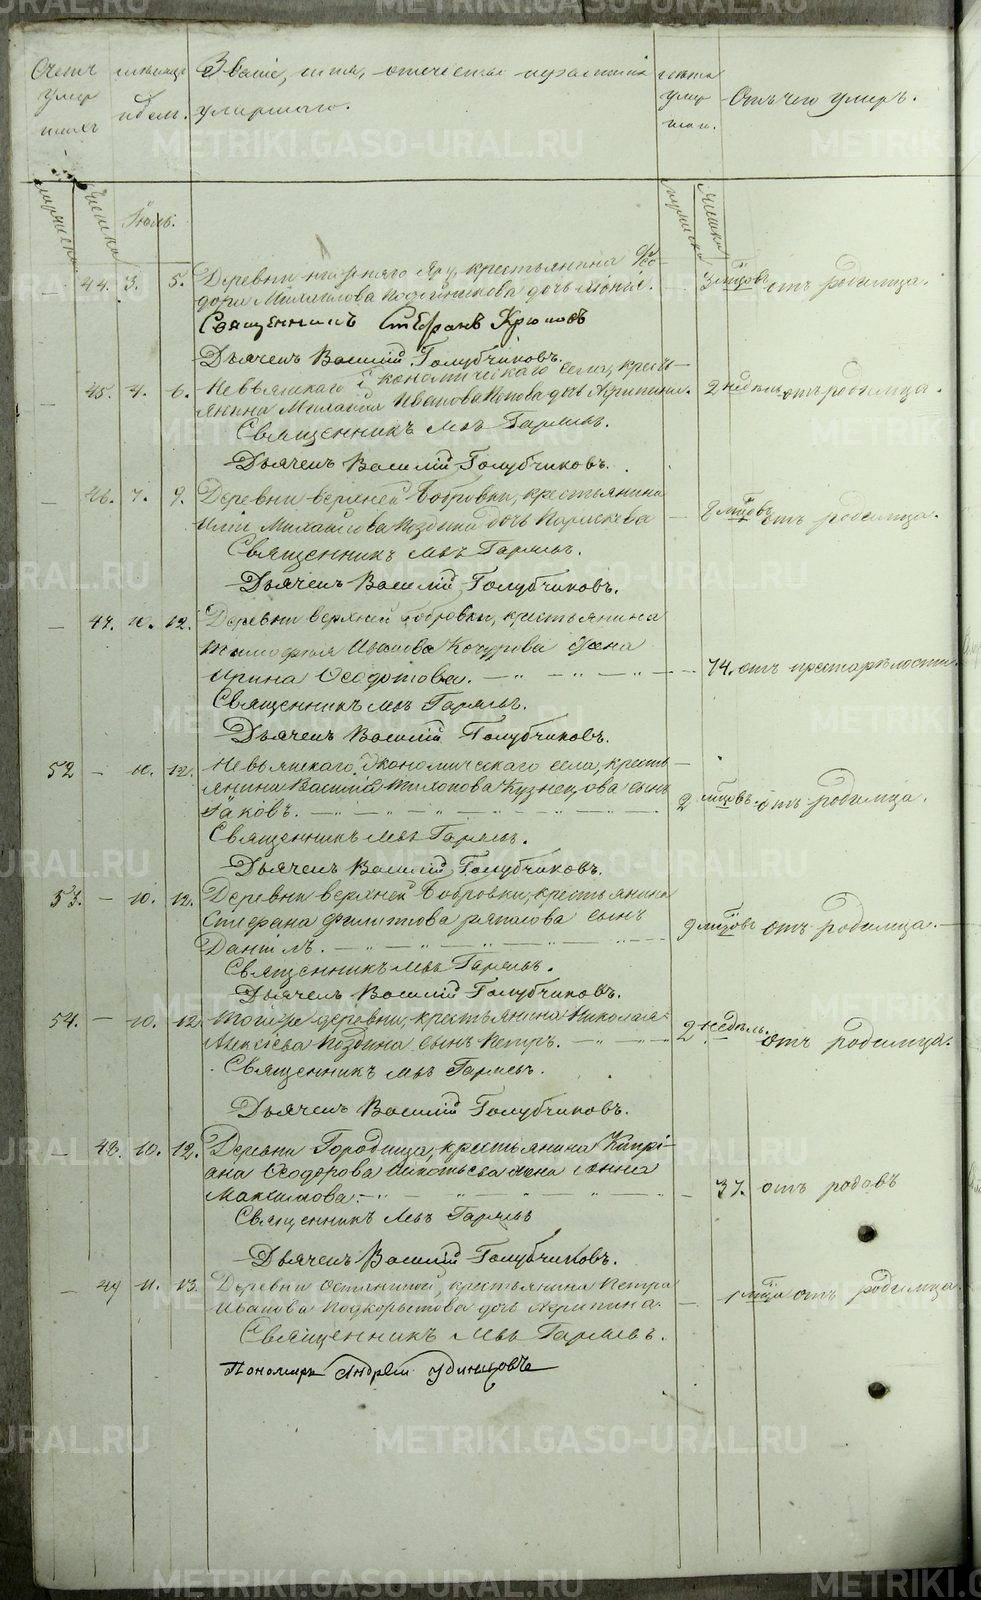 Счетъ умершихъ
мѣсяцъ и день.
Званіе, имя, отчество и фамилія умершаго.
лѣта умершаго.
Отъ чего умеръ.
мужеска
женска
Іюль.
мужеска
женска
44. 3. 5. Деревни нижняго Яру, крестьянина Ѳео-
дора Михайлова дочь 3 мцовъ отъ родимца.
Священникъ Стефанъ Крюковъ
Дьячекъ Василій Голубчиковъ.
— 45. 4. 6. Невьянскаго Экономическаго села, крестъ-
янина Михаила Иванова Попова дочь Агрипина. 2 недѣль отъ родимца.
Священникъ Левъ Гаряевъ.
Дьячекъ Василій Голубчиковъ.
— 46. 7. 9. Деревни верхней Бобровки, крестьянина
Михайлова дочь Параскева — 8 мцовъ отъ родимца.
Священникъ Левъ Гаряевъ.
Дьячекъ Василій Голубчиковъ.
— 47. 10. 12. Деревни верхней Бобровки, крестьянина
Тимофея Иванова Кочурова жена
Ирина Ѳеодотова. — 74. отъ престарѣлости.
Священникъ Левъ Гаряевъ.
Дьячекъ Василій Голубчиковъ.
52 — 10. 12. Невьянскаго Экономическаго села, кресть-
янина Василія Кузнецова сынъ
Іаковъ. 2 мцовъ отъ родимца.
Священникъ Левъ Гаряевъ.
Дьячекъ Василій Голубчиковъ.
53. — 10. 12. Деревни верхней Бобровки, крестьянина
Стефана Филиппова сынъ
Даніилъ. 9 мцовъ отъ родимца.
Священникъ Левъ Гаряевъ.
Дьячекъ Василій Голубчиковъ.
54. — 10. 12. Тойже деревни, крестьянина Николая
Алексіева сынъ Петръ. 2 недѣль. отъ родимца.
Священникъ Левъ Гаряевъ.
Дьячекъ Василій Голубчиковъ.
— 48. 10. 12. Деревни Городища, крестьянина Кипрі-
ана Ѳеодорова жена Анна
Максимова. — 37. отъ родовъ
Священникъ Левъ Гаряевъ
Дьячекъ Василій Голубчиковъ.
— 49 11. 13. Деревни Останиной, крестьянина Петра
Иванова Подкорытова дочь Агрипина. — 1 мца отъ родимца.
Священникъ Левъ Гаряевъ.
Пономарь Андрей Удинцовъ
METRIKI.GASO-URAL.RU